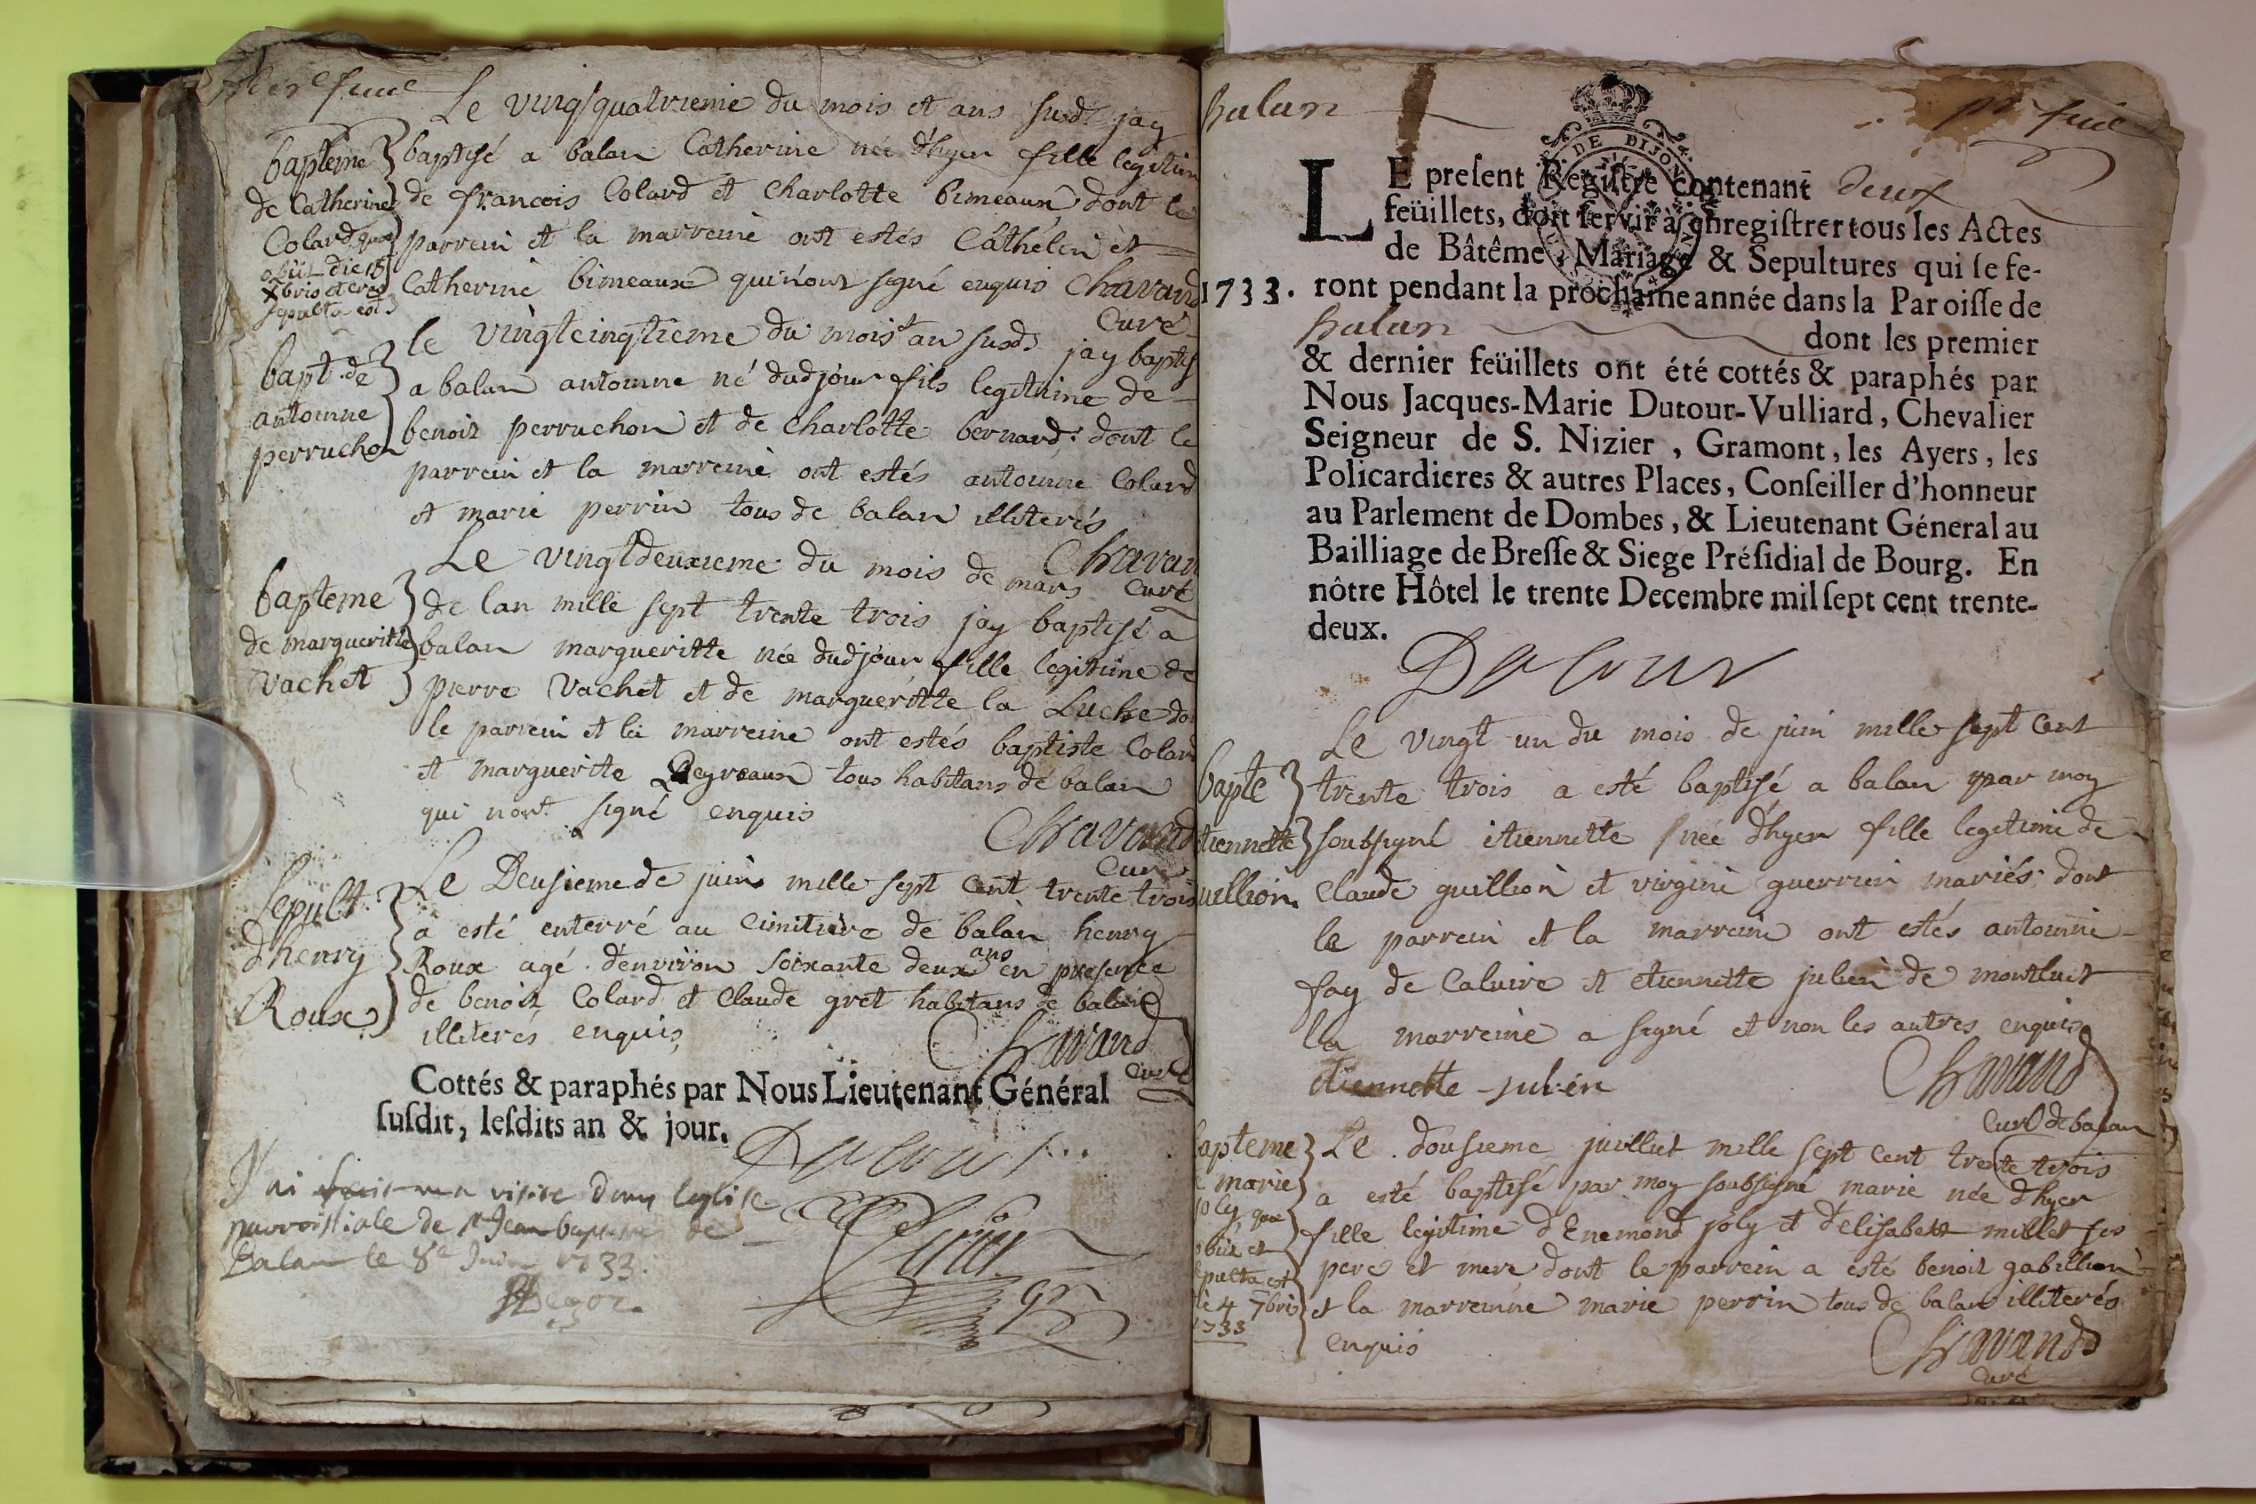 Le vingtquatrieme du mois et ans susd. jay
bapteme
de Catherine
Colard, quæ
obiit die 15
Xbris et eres
sepulta est
baptisé a balan Catherine née d'hyer fille legitim
de francois Colard et charlotte bimeaux dont le
parrein et la marreine ont estés Cathelin et
Catherine bimeaux qui n'ont signé enquis Chavand
Curé
le vingtcinqtieme du mois et an susd. jay baptis
bapt. de
antoinne
perruchon
a balan antoinne né dudjour fils legitime de
benoit perruchon et de charlotte bernard. dont le
parrein et la marreine ont estés antoinne Colard
et marie perrin tous de balan illiterés
Chavan
Curé
Le vingtdeuxieme du mois de mars
bapteme
de margueritte
Vachet
de lan mille sept trente trois jay baptisé a
balan margueritte née dudjour fille legitime de
pierre Vachet et de margueritte la Luche do
le parrein et la marreine ont estés baptiste Colard
et marguerite Peyreaux tous habitans de balan
qui n'ont signé enquis
Chavand
Curé
Le Deusieme de juin mille sept cent trente trois
Sepult.
d'henry
Roux
a esté enterré au cimitiere de balan henry
Roux agé d'environ soixante deux ans en presence
de benoit Colard et Claude gret habitans de balan
illiterés enquis
Chavand
Curé
Cottés & paraphés par Nous Lieutenant Général
susdit, lesdits an & jour.
Dutour
J'ai fait ma visite dans l'eglise
parroissiale de St Jean baptiste de
Balan le 8e Juin 1733.
balan
pr feuil
LE present Registre contenant deux
feüillets, doit servir à enregistrer tous les Actes
de Bâtême, Mariage & Sepultures qui se fe-
1733. ront pendant la prochaine année dans la Paroisse de
balan dont les premier
& dernier feüillets ont été cottés & paraphés par
Nous Jacques-Marie Dutour-Vulliard, Chevalier
Seigneur de S. Nizier, Gramont, les Ayers, les
Policardieres & autres Places, Conseiller d'honneur
au Parlement de Dombes, & Lieutenant Géneral au
Bailliage de Bresse & Siege Présidial de Bourg. En
nôtre Hôtel le trente Decembre mil sept cent trente-
deux.
Dutour
Le vingt un du mois de juin mille sept cent
bapte
tiennette
uillion
trente trois a esté baptisé a balan par moy
soubsigné etiennette née d'hyer fille legetime de
Claude guillion et virgine guerrin mariés dont
le parrein et la marreine ont estés antoinne
fay de Caluire et etiennette julien de montluet
la marreine a signé et non les autres enquis
etiennette julien
Chavand
Curé de balan
apteme
marie
joly, quæ
obiit et
epulta est
die 4 7bris
1733
Le dousieme juillet mille sept cent trente trois
a esté baptisé par moy soubsigné marie née d'hyer
fille legitime d'Enemond joly et d'elisabett millet ses
pere et mere dont le parrein a esté benoit gabillion
et la marreinne marie perrin tous de balan illiterés
enquis
Chavand
Curé